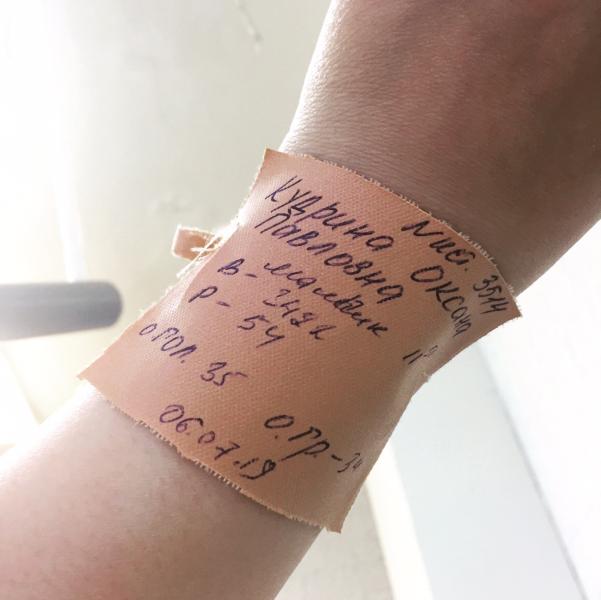 N ист. 3514
Кудрина Оксана
Павловна 11⁰⁰
В - мальчик
3420
Р - 54
о гол. 35 о.гр. - 34
06.07.19